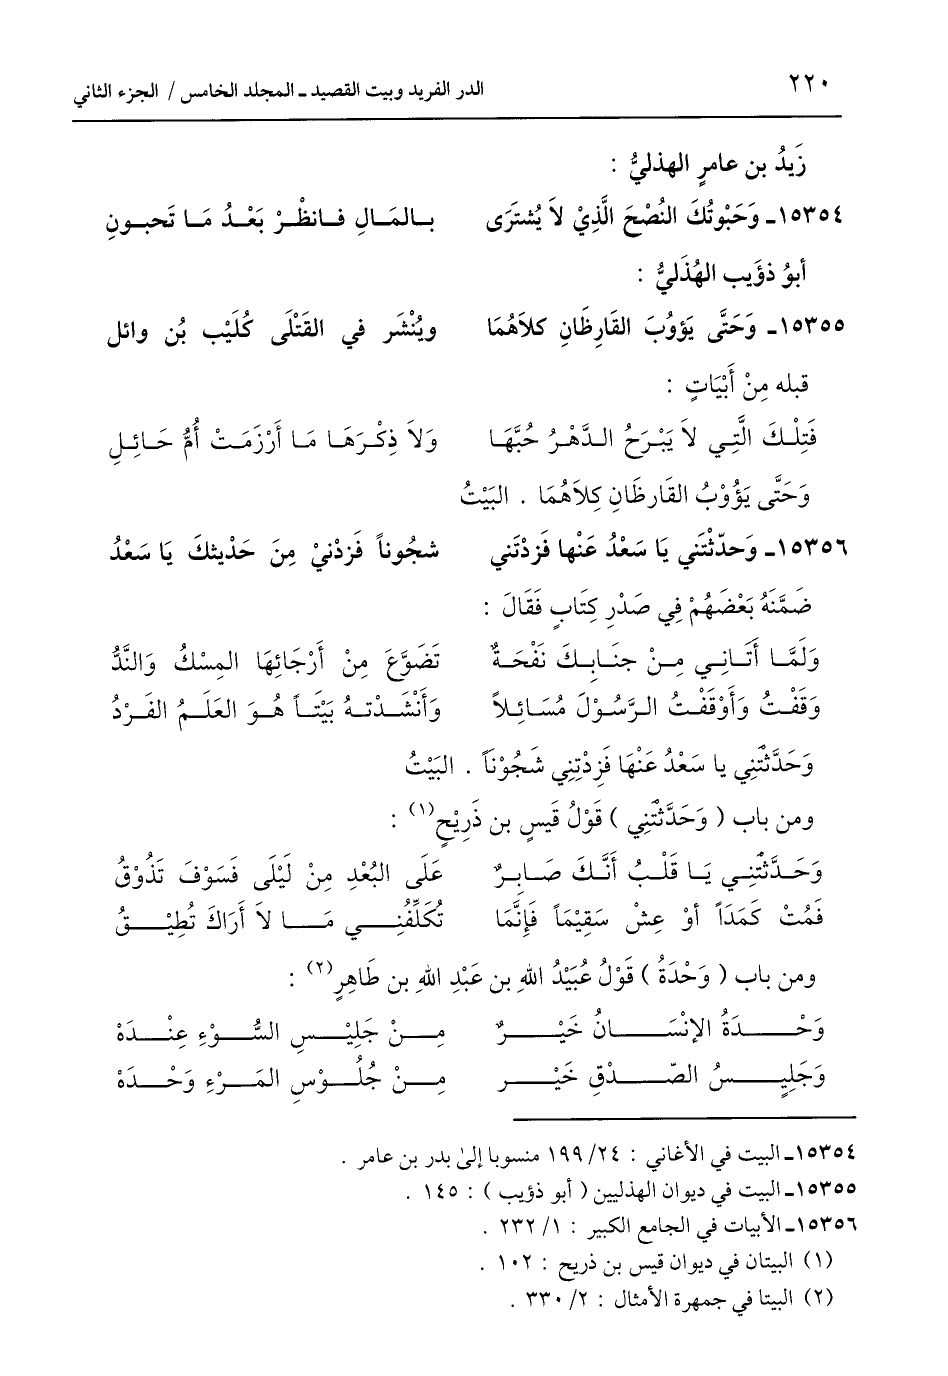 ٢٢٠ الدر الفريد وبيت القصيد ـ المجلد الخامس / الجزء الثاني
زَيدُ بن عامرٍ الهذليُّ :
١٥٣٥٤ـ وَحَبْوتُكَ النُصْحَ الَّذِيْ لاَ يُشتَرَى بالمَالِ فانظْرْ بَعْدُ مَا تَحبونِ
أبوُ ذؤَيب الهُذَليُّ :
١٥٣٥٥ـ وَحَتَّى يَؤوُبَ القَارِظَانِ كلاَهُمَا ويُنْشَر في القَتْلَى كُلَيْب بُن وائل
قبله مِنْ أَبْيَاتٍ :
فَتِلْكَ الَّتِي لاَ يَبْرَحُ الدَّهْرُ حُبَّهَا وَلاَ ذِكْرَهَا مَا أَرْزَمَتْ أُمُّ حَائِلِ
وَحَتَّى يَؤُوْبُ القَارظَانِ كِلاَهُمَا . البَيْتُ
١٥٣٥٦ـ وَحدّثْتَني يَا سَعْدُ عَنْها فَزدْتَني شجُوناً فَزدْنيْ مِنَ حَدْيثكَ يَا سَعْدُ
ضَمَّنَهُ بَعْضَهُمْ فِي صَدْرِ كِتَابٍ فَقَالَ :
وَلَمَّا أَتَانِي مِنْ جنَابِكَ نَفْحَةٌ تَضَوَّعَ مِنْ أَرْجَائِهَا المِسْكُ وَالنَّدُّ
وَقَفْتُ وَأَوْقَفْتُ الرَّسُوْلَ مُسَائِلاً وَأَنْشَدْتهُ بَيْتاً هُوَ العَلَمُ الفَرْدُ
وَحَدَّثْتَنِي يا سَعْدُ عَنْهَا فَزِدْتِنِي شَجُوْناً . البَيْتُ
ومن باب ( وَحَدَّثْتَنِي ) قَوْلُ قَيسٍ بن ذَرِيْحٍ(١) :
وَحَدَّثْتَنِي يَا قَلْبُ أَنَّكَ صَابِرٌ عَلَى البُعْدِ مِنْ لَيْلَى فَسَوْفَ تَذُوْقُ
فَمُتْ كَمَدَاً أوْ عِشْ سَقِيْمَاً فَإِنَّمَا تُكَلِّفُنِي مَا لاَ أَرَاكَ تُطِيْقُ
ومن باب ( وَحْدَةُ ) قَوْلُ عُبَيْدُ اللهِ بن عَبْدِ اللهِ بن طَاهِرٍ(٢) :
وَحْدَةُ الإنْسَانُ خَيْرٌ مِنْ جَلِيْسِ السُّوْءِ عِنْدَهْ
وَجَلِيسُ الصّدْقِ خَيْر مِنْ جُلُوْسِ المَرْءِ وَحْدَهْ
١٥٣٥٤ـ البيت في الأغاني : ٢٤/ ١٩٩ منسوبا إلىٰ بدر بن عامر .
١٥٣٥٥ـ البيت في ديوان الهذليين ( أبو ذؤيب ) : ١٤٥ .
١٥٣٥٦ـ الأبيات في الجامع الكبير : ١/ ٢٣٢ .
(١) البيتان في ديوان قيس بن ذريح : ١٠٢ .
(٢) البيتا في جمهرة الأمثال : ٢/ ٣٣٠ .